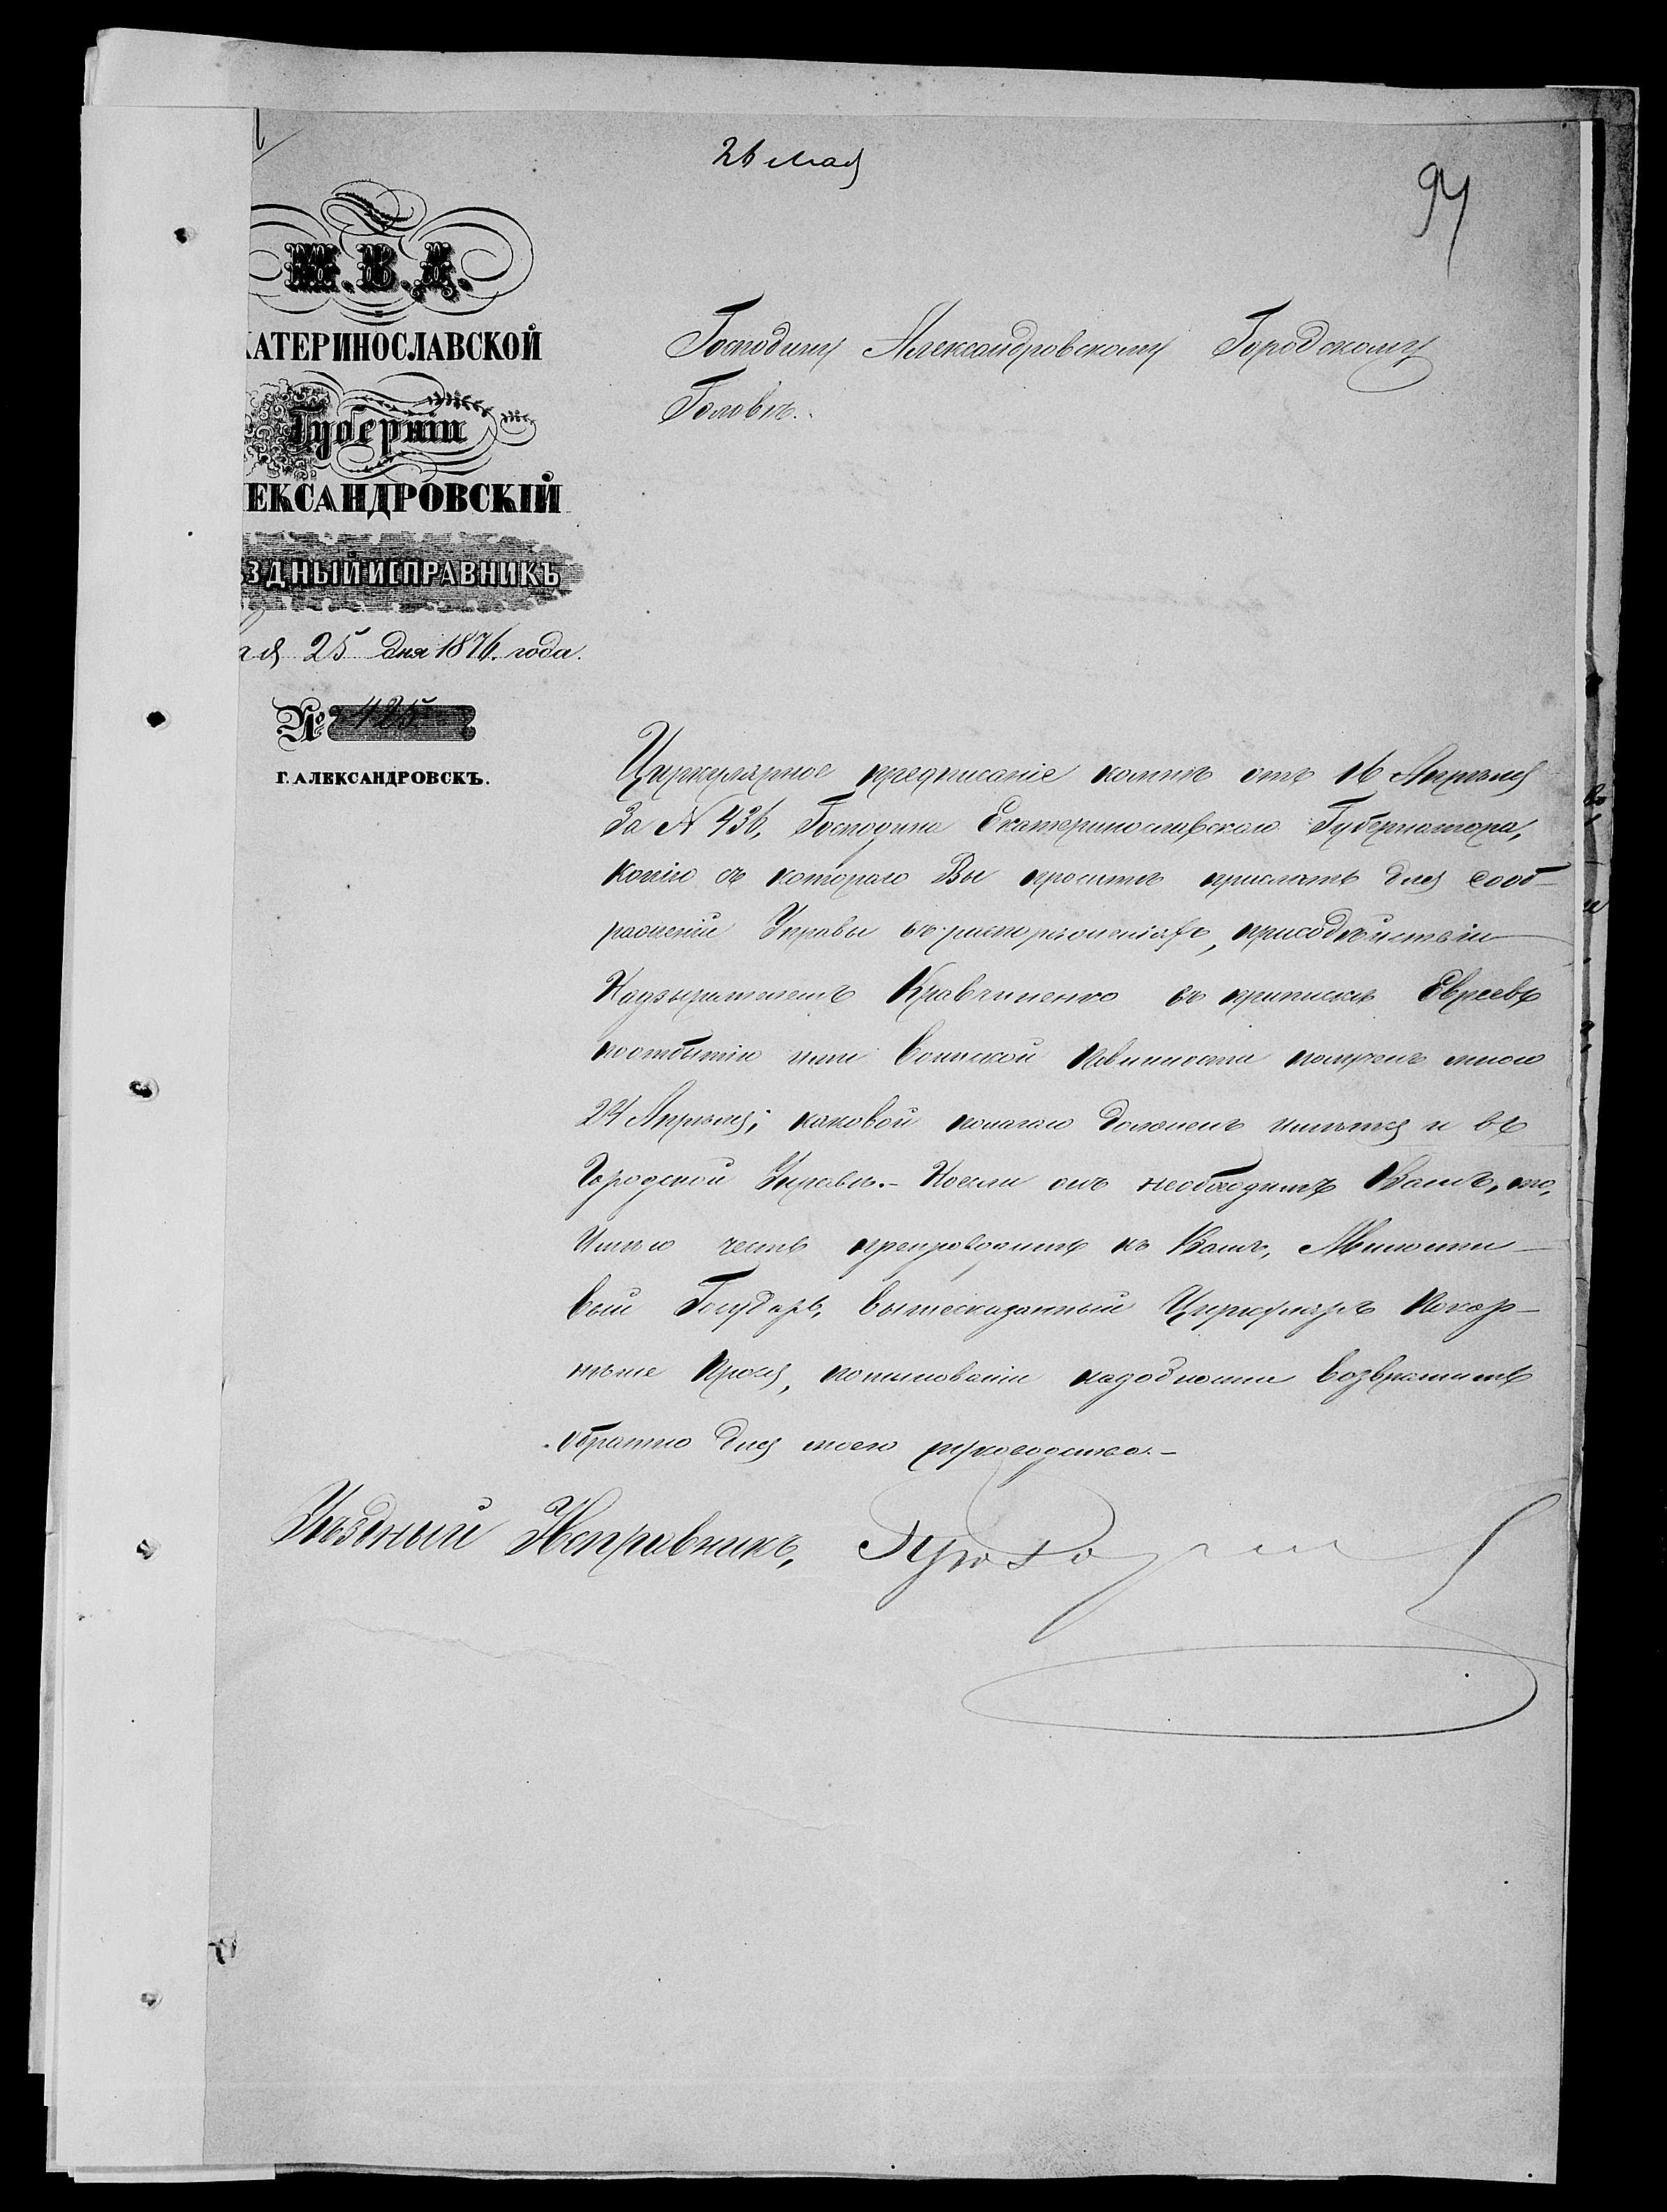 26 мая
97
М.В.Д.
КАТЕРИНОСЛАВСКОЙ
Губерніи
ЛЕКСАНДРОВСКІЙ
ЗДНЫЙ ИСПРАВНИКЪ
ая 25 дня 1876. года.
№ 425
Г. АЛЕКСАНДРОВСКЪ.
Господину Александровскому Городскому
Головѣ.
Циркулярное предписаніе комнѣ отъ 16 Апрѣля
За № 436, Господина Екатеринославскаго Губернатора,
копію съ котораго Вы просите прислать для сооб-
раженій Управы въ распоряженіяхъ,
Надзирателемъ Кравчиненко въ припискѣ Евреевъ
поотбытію ими воинской повинности полученъ мною
24 Апрѣля; каковой полагаю долженъ имѣтся и въ
Городской Управѣ.- Ноесли онъ необходимъ Вамъ, то,
Имѣю честь препроводить къ Вамъ, Милости-
вый Государь, вышесказанный Циркуляръ Покор-
нѣше прося, поминованіи надобности возвратить
обратно для моего руководства.-
Уѣздный Исправникъ,